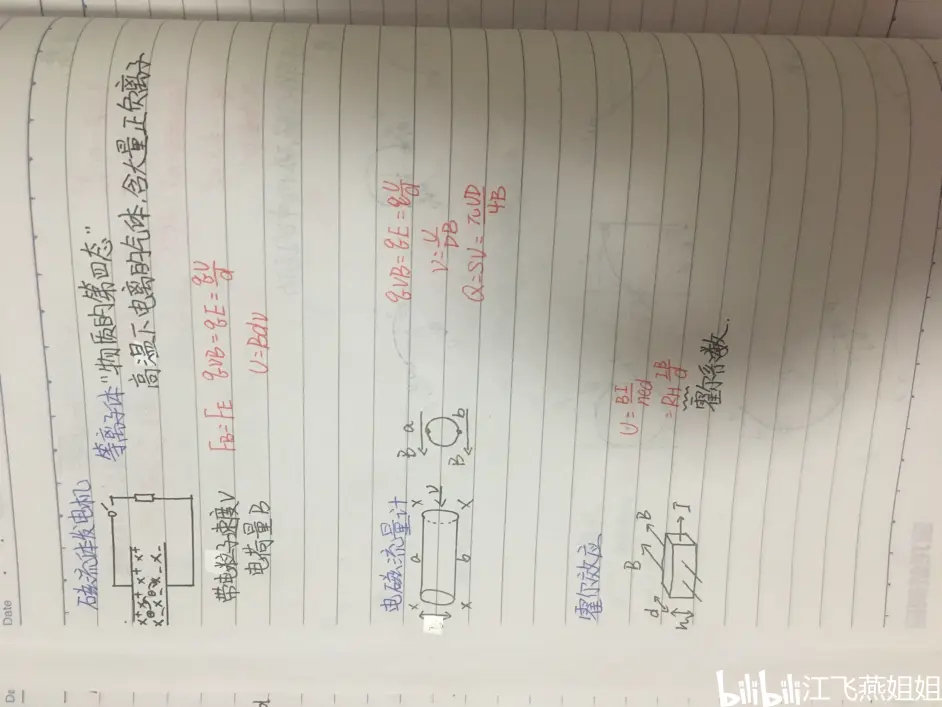 Date
磁流体发电机
等离子体"物质的第四态"
高温下电离的气体,含大量正负离子
带电粒子速度V
电荷量B
F_B=F_E qVB=qE=\frac{qU}{d}
U=Bdv
电磁流量计
a
b
V
B a
B b
qVB=qE=q\frac{U}{d}
V=\frac{U}{DB}
Q=SV=\frac{πUD}{4B}
霍尔效应
d
B
B
h
I
U=\frac{BI}{ned}
=R_H\frac{IB}{d}
霍尔系数.
bilibili 江飞燕姐姐